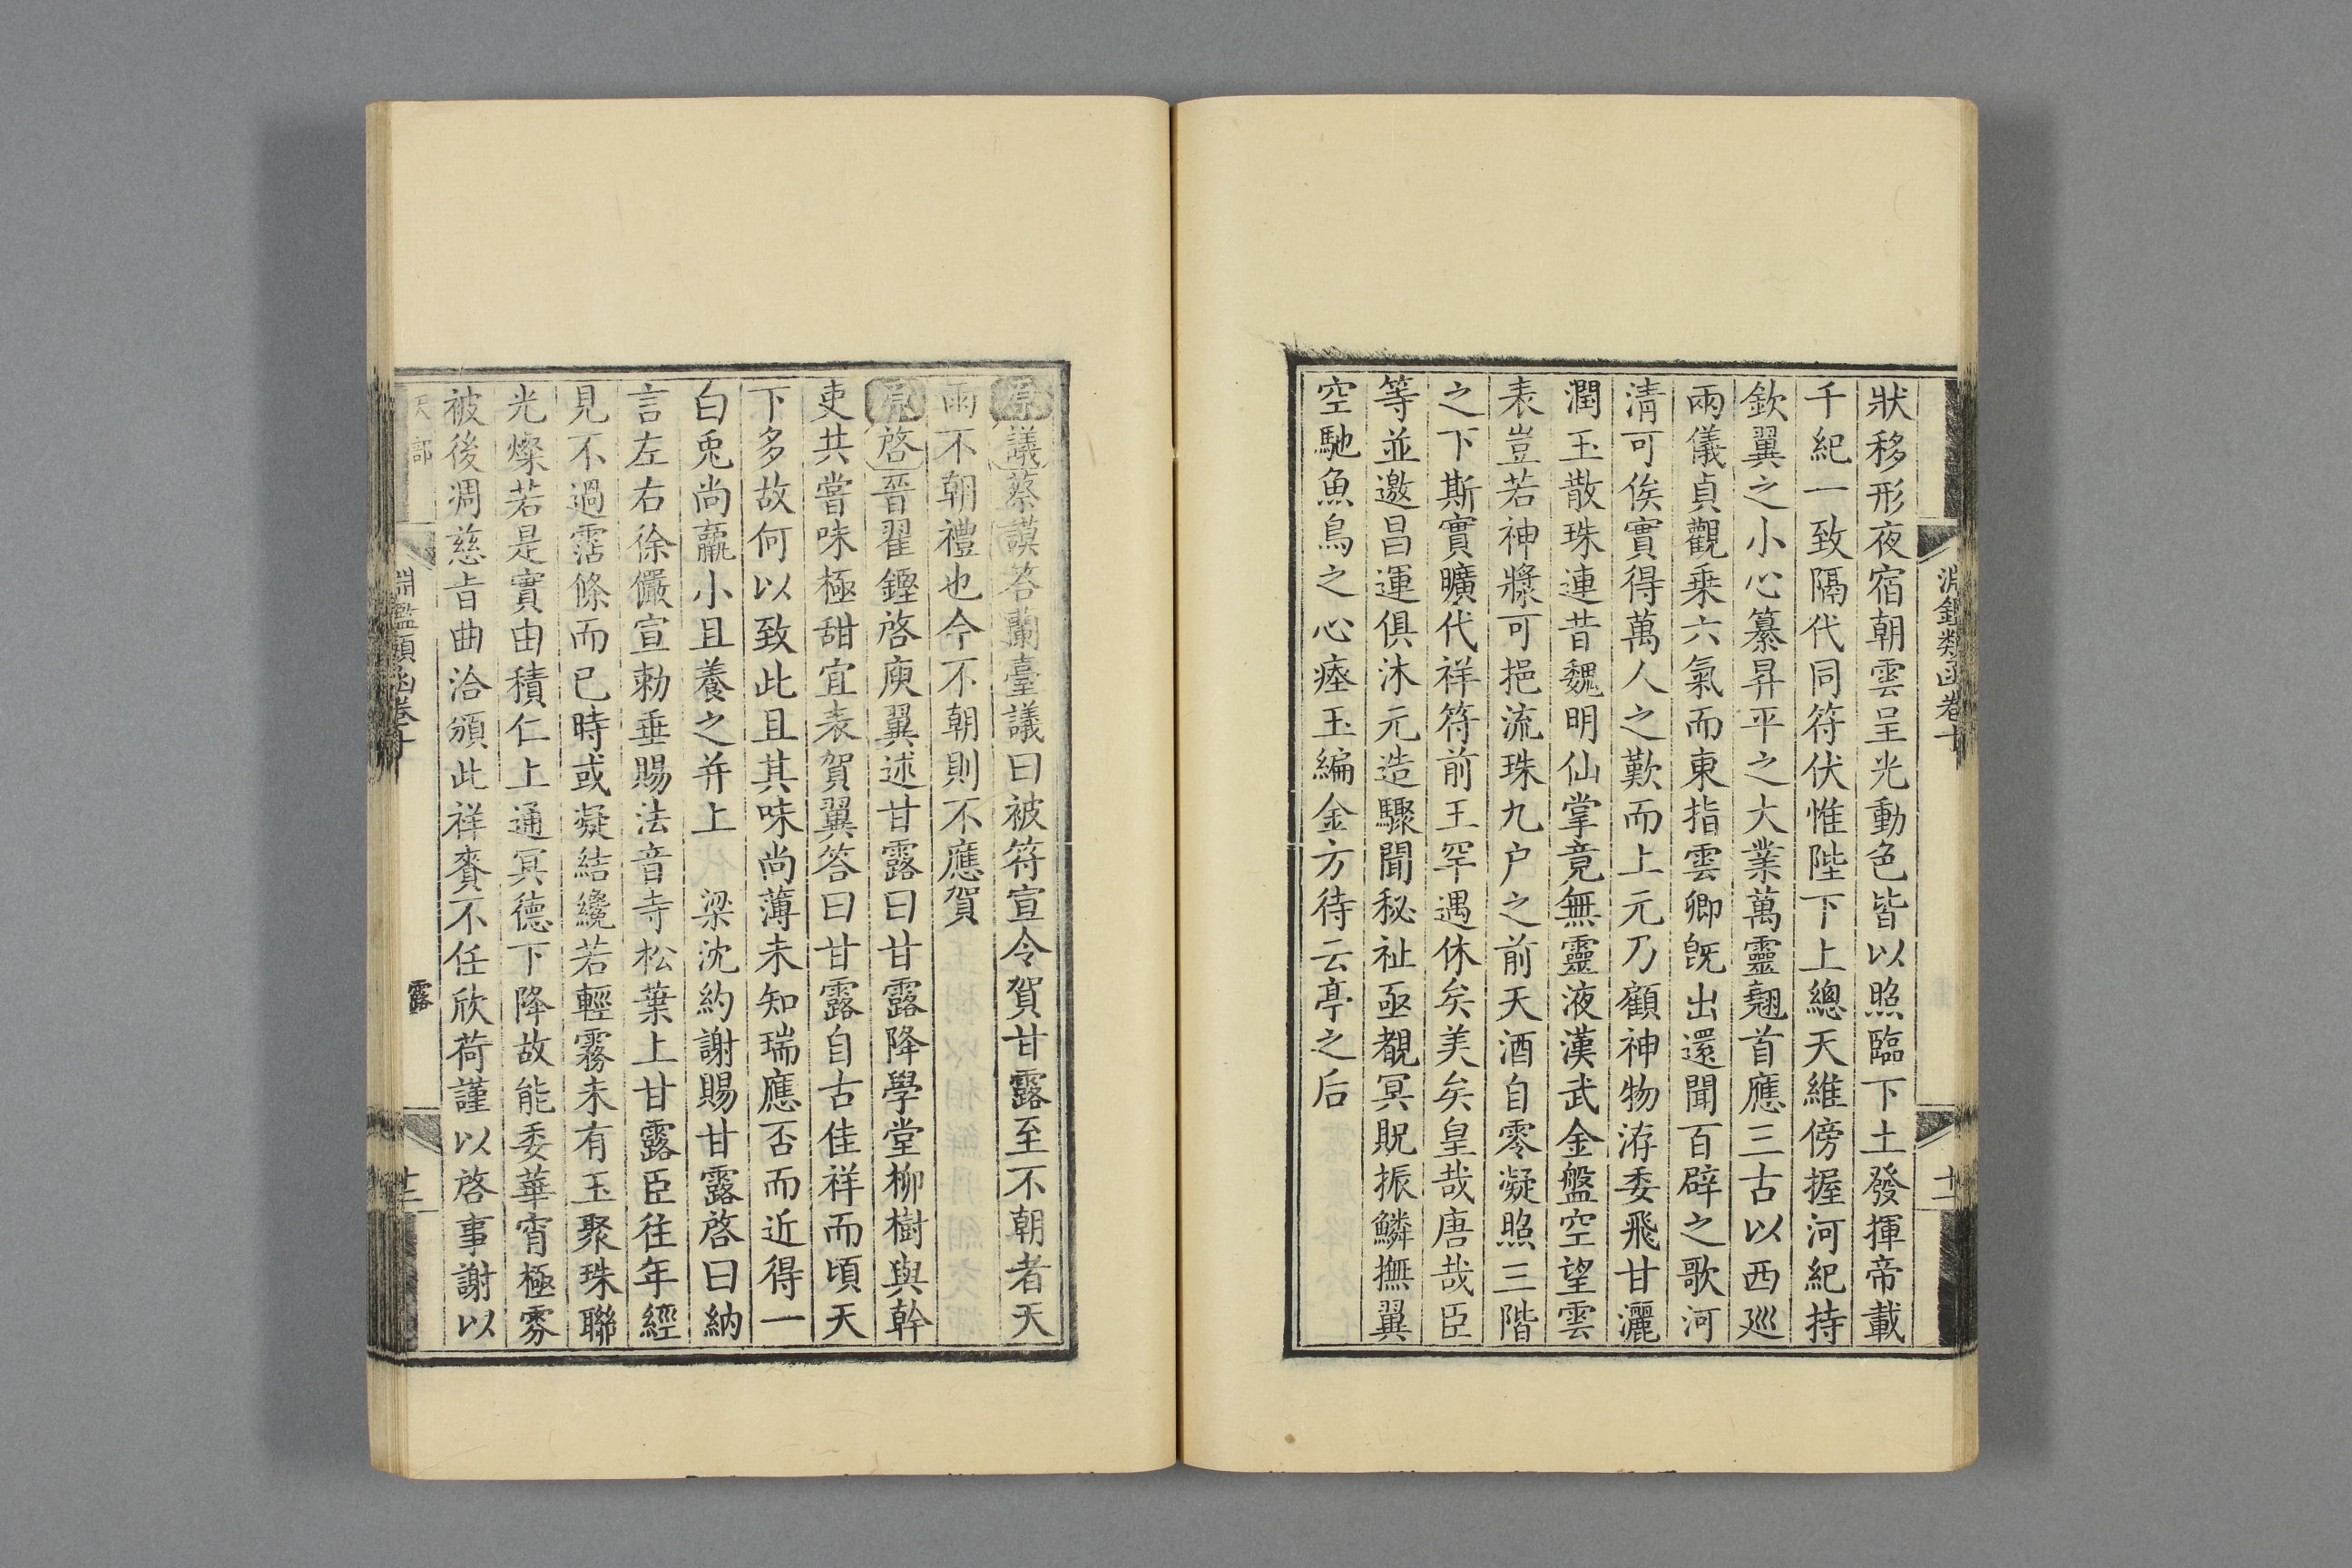 淵鑑類函卷十
十二
狀移形夜宿朝雲呈光動色皆以照臨下土發揮帝載
千紀一致隔代同符伏惟陛下上總天維傍握河紀持
欽翼之小心纂昇平之大業萬靈翹首應三古以西廵
兩儀貞觀乗六氣而東指雲卿旣出還聞百辟之歌河
清可俟實得萬人之歎而上元乃顧神物洊委飛甘灑
潤玉散珠連昔魏明仙掌竟無靈液漢武金盤空望雲
表豈若神漿可挹流珠九户之前天酒自零凝照三階
之下斯實曠代祥符前王罕遇休矣美矣皇哉唐哉臣
等並邀昌運俱沐元造驟聞秘祉亟覩冥貺振鱗撫翼
空馳魚鳥之心瘞玉編金方待云亭之后
原議蔡謨答蘭臺議曰被符宣令賀甘露至不朝者天
雨不朝禮也今不朝則不應賀
原啓晉翟鏗啓庾翼述甘露曰甘露降學堂柳樹與幹
吏共嘗味極甜宜表賀翼答曰甘露自古佳祥而頃天
下多故何以致此且其味尚薄未知瑞應否而近得一
白兎尚羸小且養之并上　梁沈約謝賜甘露啓曰納
言左右徐儼宣勑垂賜法音寺松葉上甘露臣往年經
見不過霑條而已時或凝結纔若輕霧未有玉聚珠聯
光燦若是實由積仁上通冥德下降故能委華宵極雰
被後凋慈旨曲洽頒此祥賚不任欣荷謹以啓事謝以
天部
淵鑑類函卷十
露
十三